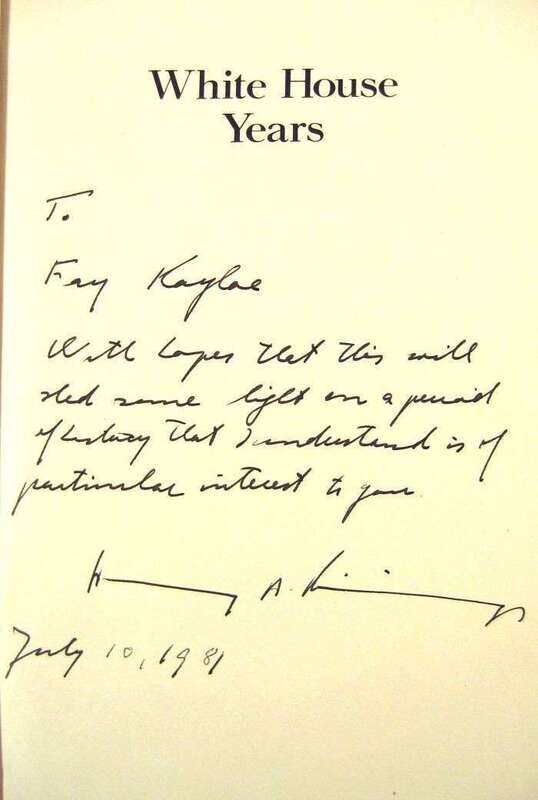 White House
Years
To
Fay Kayloe
With hopes that this will
shed some light on a period
of history that I understand is of
particular interest to you
Henry A. Kissinger
July 10, 1981